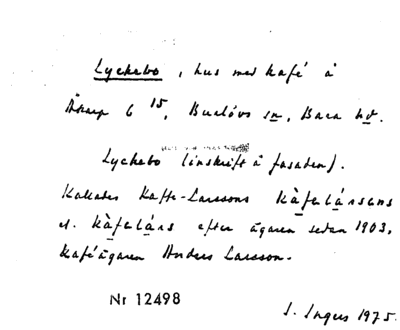 Lyckebo, hus med kafé å
Åkarp 6 15, Burlövs sn, Bara hd.
Lyckebo (inskrift å fasaden).
Kallades Kaffe-Larssons kàfelársens
el. kàfelárs efter ägaren sedan 1903,
kaféägaren Anders Larsson.
Nr 12498
I. Ingers 1975.